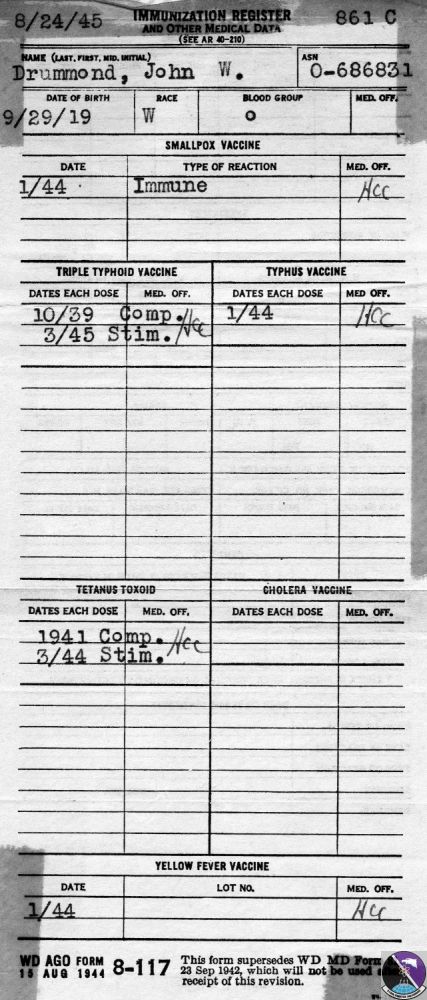 8/24/45 IMMUNIZATION REGISTER 861 C
AND OTHER MEDICAL DATA
(SEE AR 40-210)
NAME (LAST, FIRST, MID. INITIAL) ASN
Drummond, John W. O-686831
DATE OF BIRTH RACE BLOOD GROUP MED. OFF.
9/29/19 W O
SMALLPOX VACCINE
DATE TYPE OF REACTION MED. OFF.
1/44 Immune HCC
TRIPLE TYPHOID VACCINE TYPHUS VACCINE
DATES EACH DOSE MED. OFF. DATES EACH DOSE MED OFF.
10/39 Comp. HCC 1/44 HCC
3/45 Stim.
TETANUS TOXOID CHOLERA VACCINE
DATES EACH DOSE MED. OFF. DATES EACH DOSE MED. OFF.
1941 Comp. HCC
3/44 Stim.
YELLOW FEVER VACCINE
DATE LOT NO. MED. OFF.
1/44 HCC
WD AGO FORM 8-117 This form supersedes WD MD Form
15 AUG 1944 23 Sep 1942, which will not be used
receipt of this revision.